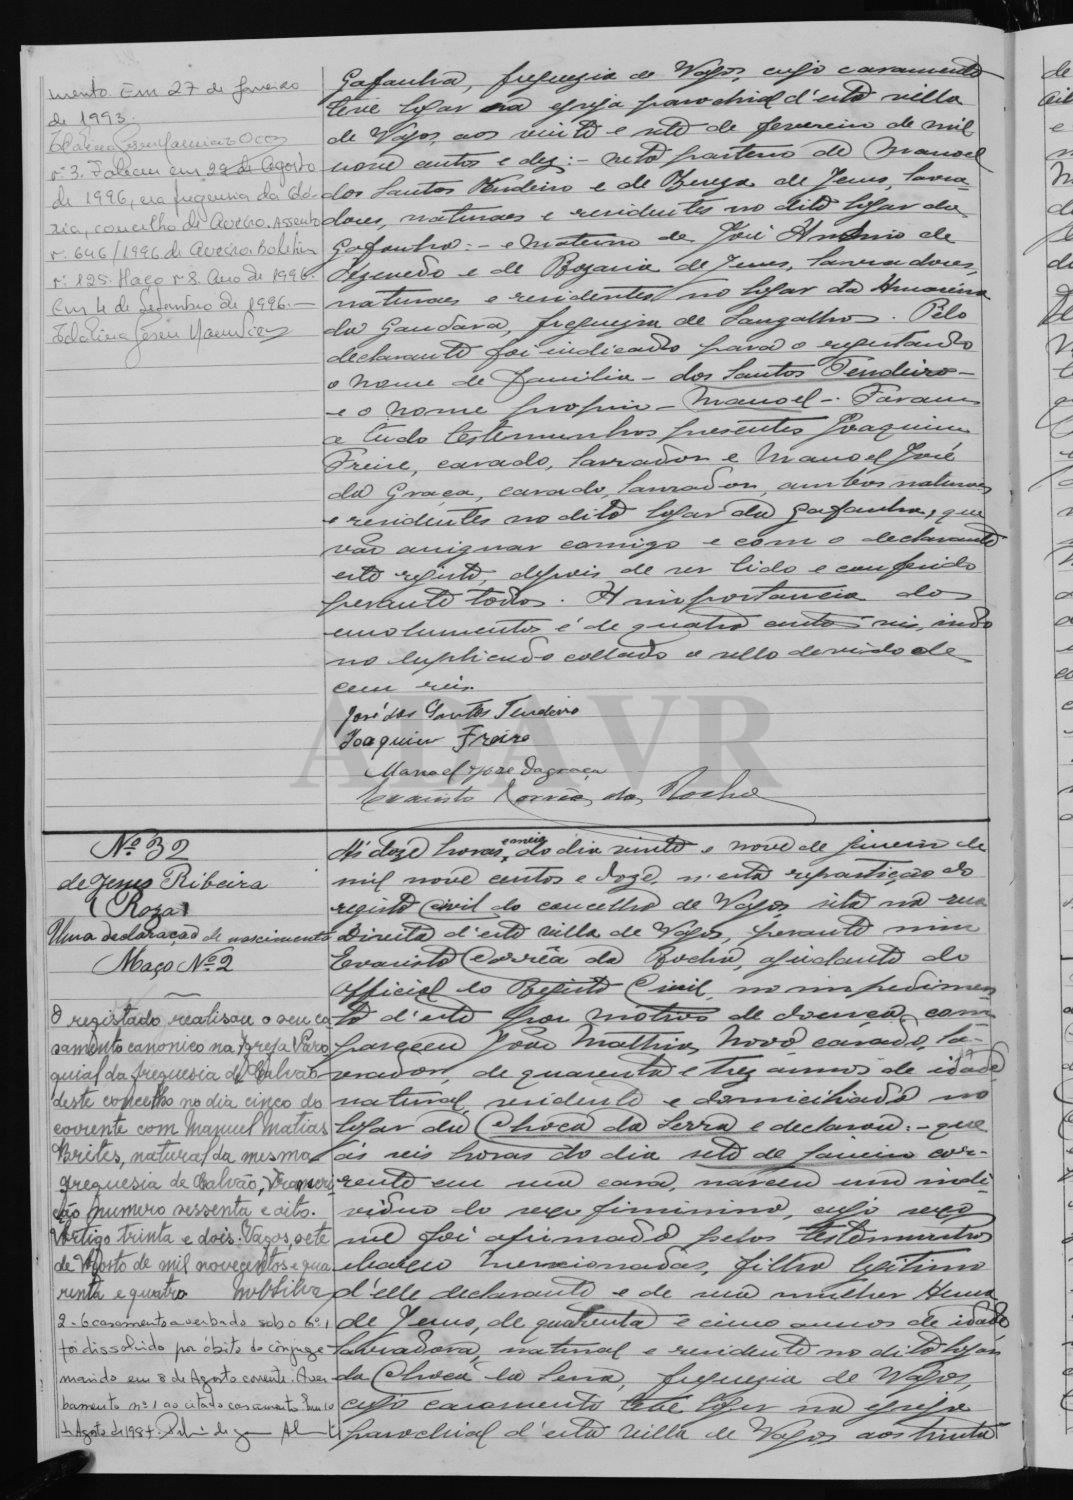 mento. Em 27 de Janeiro
de 1993.
nº 3. Faleceu em 22 de Agosto
de 1996, na freguesia da Gló-
ria, concelho de Aveiro. Assento
nº 646/1996 de Aveiro. Boletim
nº 125. Maço nº 8. Ano de 1996.
Em 4 de Setembro de 1996.—
Gafanha, freguezia de Vagos, cujo casamento
teve logar na egreja parochial d'esta villa
de Vagos, aos vinte e sete de fevereiro de mil
nove centos e dez:- neto paterno de Manoel
dos Santos Tendeiro e de Thereza de Jesus, lavra-
dores, naturaes e residentes no dito logar da
Gafanha:- e materno de José Antonio de
Azevedo e de Rozaria de Jesus, lavradores,
naturaes e residentes no logar da Amoreira
da Gandara, freguezia de Sangalhos. Pelo
declarante foi indicado para o registando
o nome de familia - dos Santos Tendeiro -
e o nome proprio - Manoel -. Foram
a tudo testemunhas presentes Joaquim
Freire, casado, lavrador e Manoel José
da Graça, casado, lavrador, ambos naturaes
e residentes no dito logar da Gafanha, que
vão assignar comigo e com o declarante
este registo, depois de ser lido e conferido
perante todos. A importancia dos
emolumentos é de quatro centos reis, indo
no duplicado collado o sello devido de
cem reis.
José dos Santos Tendeiro
Joaquim Freire
Manoel Joze dagraça
Evaristo Corrêa da Rocha
ADAVR
Nº 32
de Jesus Ribeira
(Roza)
Uma declaração de nascimento
Maço Nº 2
O registado realisou o seu ca-
samento canonico na Igreja Paro-
quial da freguesia de Calvão
deste concelho no dia cinco do
corrente com Manuel Matias
Brites, natural da mesma
freguesia de Calvão, Transcri-
ção numero sessenta e oito.
Artigo trinta e dois. Vagos, sete
de Agosto de mil novecentos e qua-
renta e quatro
2- O casamento averbado sob o nº 1
foi dissolvido por óbito do cônjuge
marido em 8 de Agosto corrente. Aver-
bamento nº 1 ao citado casamento.
de Agosto de 198
Ás doze horas e meia do dia vinte e nove de janeiro de
mil nove centos e doze, n'esta repartição do
registo civil do concelho de Vagos, sita na rua
Direita d'esta villa de Vagos, perante mim
Evaristo Corrêa da Rocha, ajudante do
official do Registo Civil, no impedimen-
to d'este por motivo de doença, com-
pareceu João Mathias Novo, casado, la-
vrador, de quarenta e trez annos de idade
natural, residente e domiciliado no
logar da Choca da Serra e declarou:- que
ás seis horas do dia sete de janeiro cor-
rente em sua casa, nasceu um indi-
viduo do sexo feminino, cujo sexo
me foi afirmado pelas testemunhas
abaixo mencionadas, filho legitimo
d'elle declarante e de sua mulher Anna
de Jesus, de quarenta e cinco annos de idade,
lavradora, natural e residente no dito logar
da Choca da Serra, freguezia de Vagos,
cujo casamento teve logar na egreja
parochial d'esta villa de Vagos aos trinta